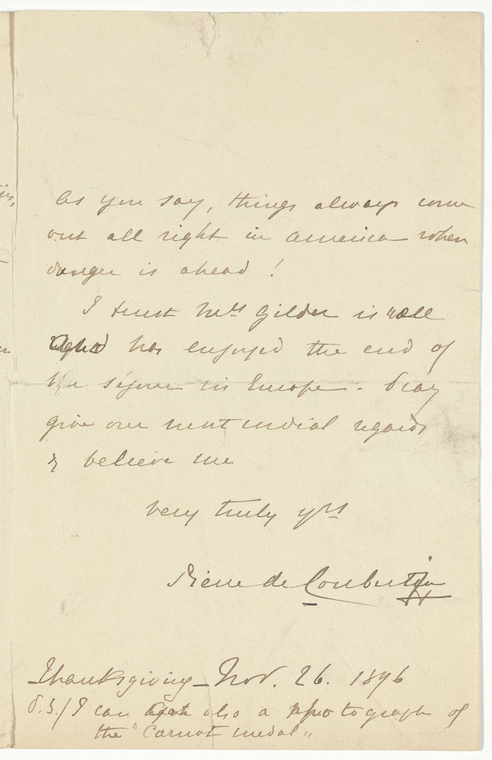 As you say, things always come
out all right in America when
danger is ahead!
I trust Mrs Gilder is well
and has enjoyed the end of
her séjour in Europe. Pray
give our most cordial regards
& believe me
Very truly yrs
Pierre de Coubertin
Thanksgiving - Nov. 26. 1896
P.S./ I can also a photograph of
the "Carnot medal"